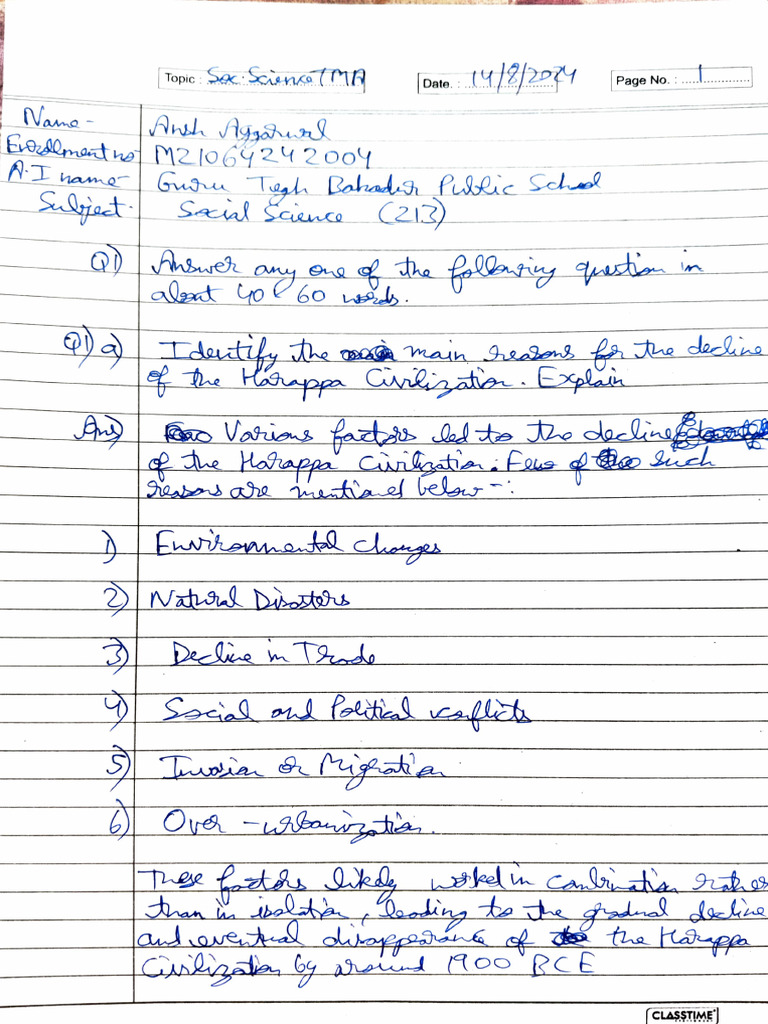 Topic : Soc. Science TMA Date. : 14/8/2024 Page No. : 1
Name - Ansh Aggarwal
Enrollment no M21064242004
A.I name - Guru Tegh Bahadur Public School
Subject - Social Science (213)
Q1) Answer any one of the following question in
about 40 - 60 words.
Q1) a) Identify the main reasons for the decline
of the Harappa Civilization. Explain
Ans) Various factors led to the decline
of the Harappa Civilization. Few of such
reasons are mentioned below -:
1) Environmental changes
2) Natural Disasters
3) Decline in Trade
4) Social and Political conflicts
5) Invasion or Migration
6) Over - urbanization.
These factors likely worked in combination rather
than in isolation, leading to the gradual decline
and eventual disappearance of the Harappa
Civilization by around 1900 BCE
CLASSTIME